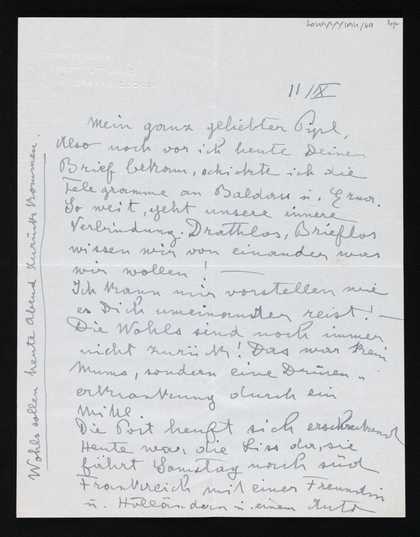 11/IX
Mein ganz geliebter Pipl,
Also noch vor ich heute Deinen
Brief bekam, schickte ich die
Telegramme an Baldass u. Erna.
So weit, geht unsere innere
Verbindung. Drathlos, Brieflos
wissen wir von einander was
wir wollen! —
Ich kann mir vorstellen wie
es Dich umeinander reist! —
Die Wohls sind noch immer
nicht zurück! Das war kein
Mums, sondern eine Drüsen-
erkrankung durch ein
Die Post heuft sich erschreckend
Heute war, die Liss da, sie
fährt Samstag nach süd
Frankreich mit einer Freundin
u. Holländern in einem Auto
Wohls sollen heute Abend zurück kommen.